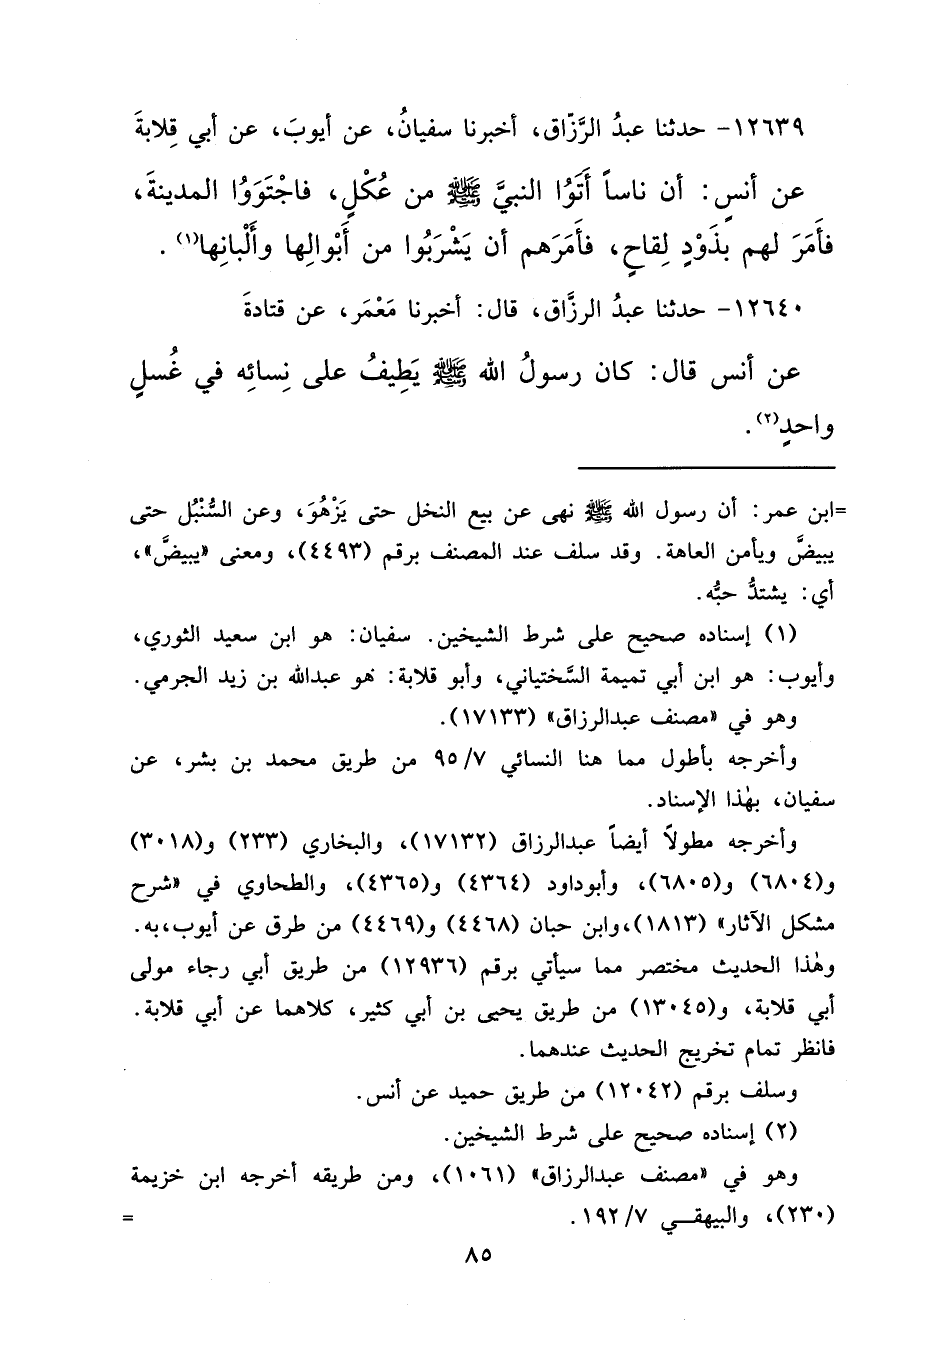 ١٢٦٣٩- حدثنا عبدُ الرَّزّاق، أخبرنا سفيانُ، عن أيوبَ، عن أبي قِلابةَ
عن أنسٍ: أن ناساً أَتَوُا النبيَّ ﷺ من عُكْلٍ، فاجْتَوَوُا المدينةَ،
فأَمَرَ لهم بذَوْدٍ لِقاحٍ، فأَمَرَهم أن يَشْرَبُوا من أَبْوالِها وأَلْبانِها(١) .
١٢٦٤٠- حدثنا عبدُ الرزَّاق، قال: أخبرنا مَعْمَر، عن قتادةَ
عن أنس قال: كان رسولُ الله ﷺ يَطِيفُ على نِسائِه في غُسلٍ
واحدٍ(٢).
=ابن عمر: أن رسول الله ﷺ نهى عن بيع النخل حتى يَزْهُوَ، وعن السُّنْبُل حتى
يبيضَّ ويأمن العاهة. وقد سلف عند المصنف برقم (٤٤٩٣)، ومعنى «يبيضَّ»،
أي: يشتدُّ حبُّه.
(١) إسناده صحيح على شرط الشيخين. سفيان: هو ابن سعيد الثوري،
وأيوب: هو ابن أبي تميمة السَّختياني، وأبو قلابة: هو عبدالله بن زيد الجرمي.
وهو في «مصنف عبدالرزاق» (١٧١٣٣).
وأخرجه بأطول مما هنا النسائي ٩٥/٧ من طريق محمد بن بشر، عن
سفيان، بهٰذا الإسناد.
وأخرجه مطولاً أيضاً عبدالرزاق (١٧١٣٢)، والبخاري (٢٣٣) و(٣٠١٨)
و(٦٨٠٤) و(٦٨٠٥)، وأبوداود (٤٣٦٤) و(٤٣٦٥)، والطحاوي في «شرح
مشكل الآثار» (١٨١٣)،وابن حبان (٤٤٦٨) و(٤٤٦٩) من طرق عن أيوب،به.
وهٰذا الحديث مختصر مما سيأتي برقم (١٢٩٣٦) من طريق أبي رجاء مولى
أبي قلابة، و(١٣٠٤٥) من طريق يحيى بن أبي كثير، كلاهما عن أبي قلابة.
فانظر تمام تخريج الحديث عندهما.
وسلف برقم (١٢٠٤٢) من طريق حميد عن أنس.
(٢) إسناده صحيح على شرط الشيخين.
وهو في «مصنف عبدالرزاق» (١٠٦١)، ومن طريقه أخرجه ابن خزيمة
(٢٣٠)، والبيهقـي ١٩٢/٧. =
٨٥